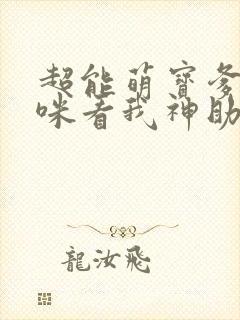 超能萌寶爹
咪看我神助
龍汝飛